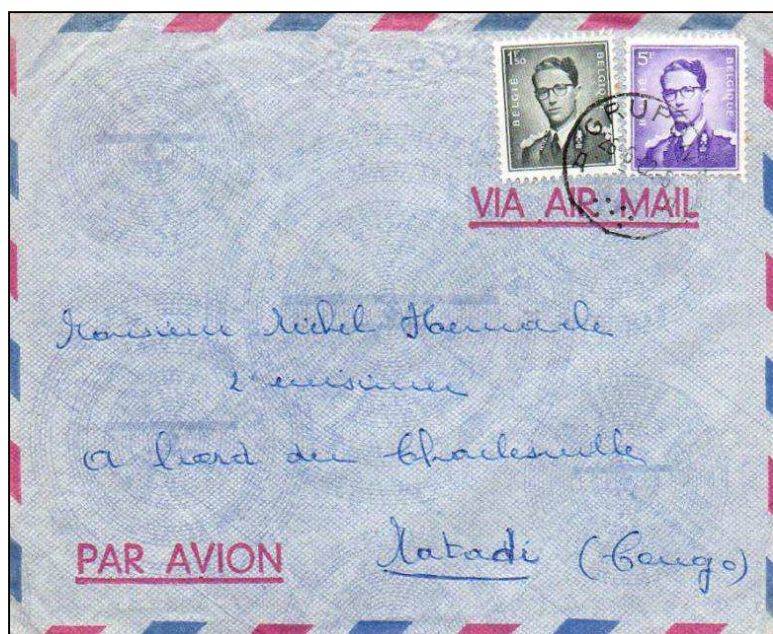 1F50
BELGIË BELGIQUE
5F
BELGIË BELGIQUE
GRUP
VIA AIR MAIL
Monsieur Michel
2e cuisinier
A bord du Charlesville
PAR AVION
Matadi (Congo)